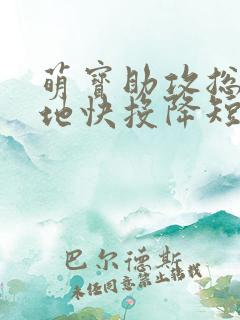 萌宝助攻总
地快投降短
巴尔德斯
未经同意禁止转载